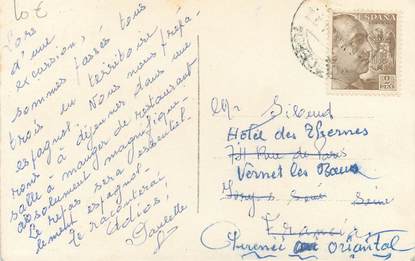 10€
Lors
d'une
excursion, sommes passés tous
trois en territoire
espagnol. Nous nous prépa-
rons à déjeuner dans une
salle à manger de restaurant
absolument magnifique.
Le repas sera essentiel-
lement espagnol.
Te raconterai
Adios!
Paulette
ESPAÑA
2
PTAS
Mr Siband
Hôtel des Thermes
Rue de Paris
Vernet les Bains
Ivry s/ Seine Seine
Francia
Pyrenées Oriental